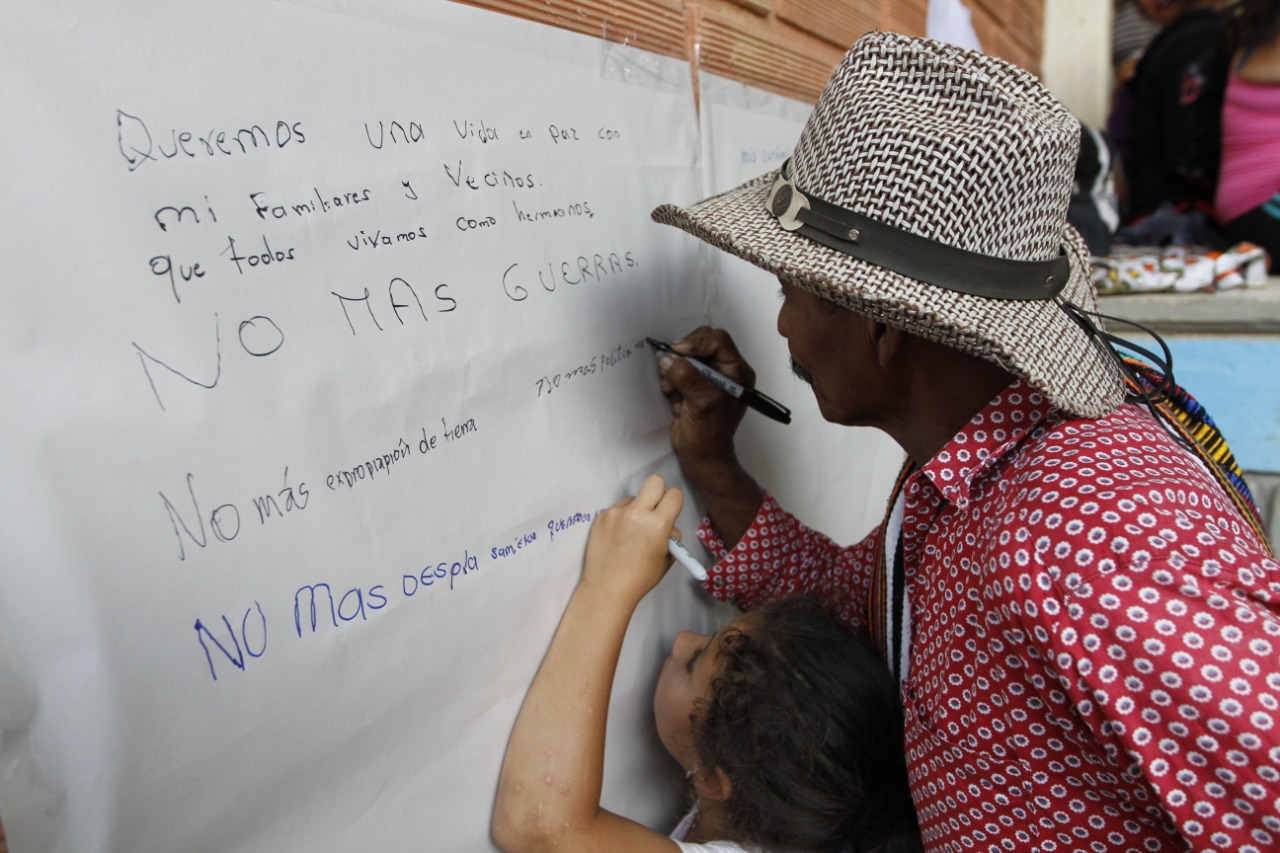 Queremos una vida en paz con
mi Familiares y Vecinos.
que todos vivamos como hermanos,
NO MAS GUERRAS.
No mas politica
No más expropiapión de tierra
NO mas Despla samietos queremos
mis